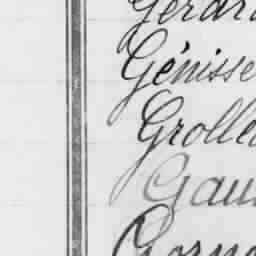 Gérard
Génisse
Grolle
Gau
Gorno